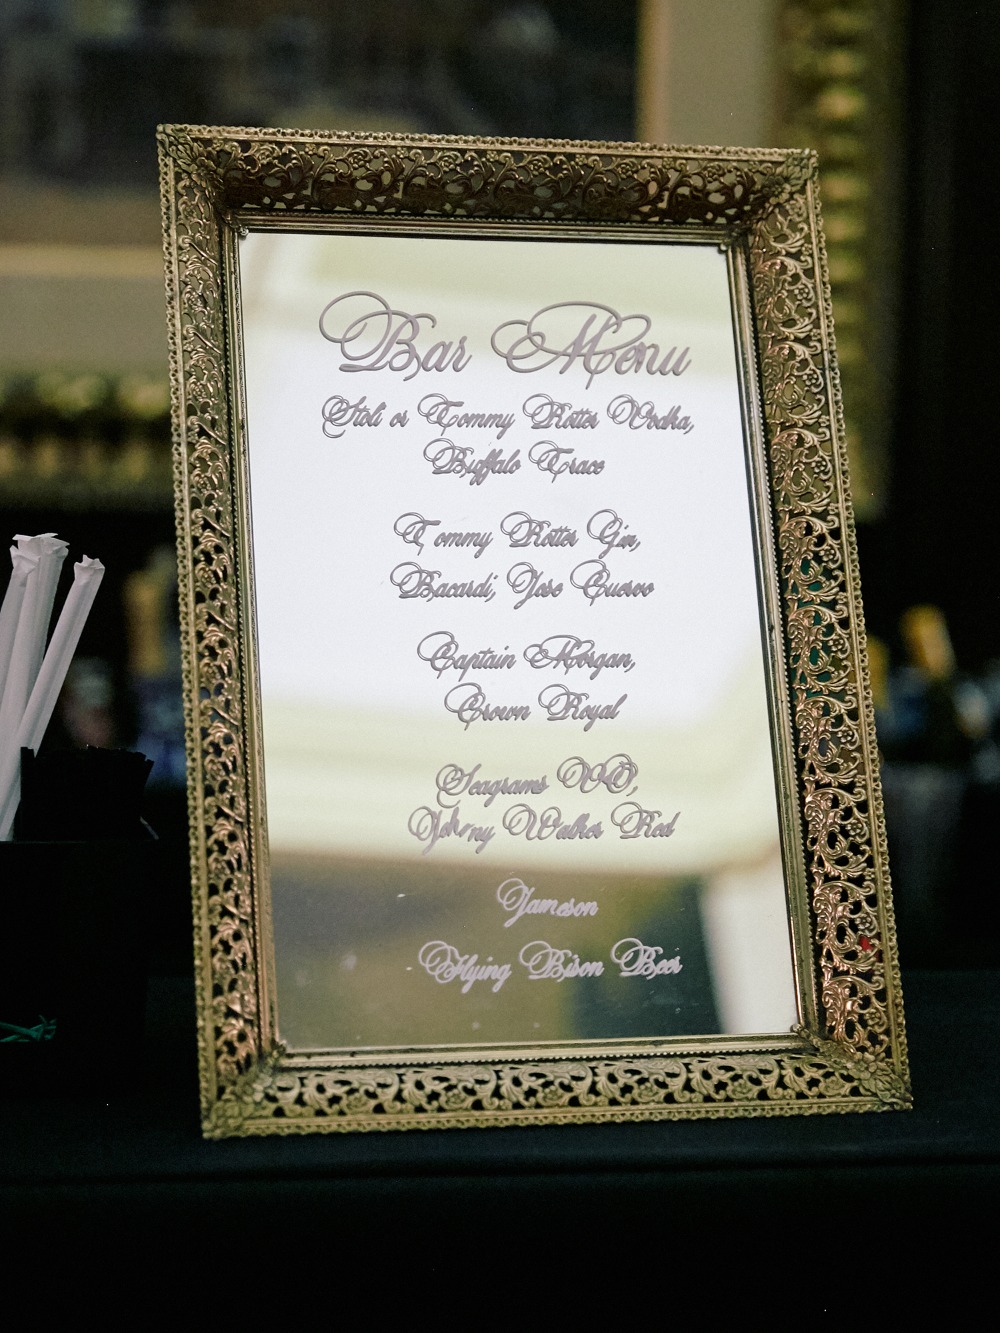 Bar Menu
Stoli or Tommy Rotter Vodka,
Buffalo Trace
Tommy Rotter Gin,
Bacardi, Jose Cuervo
Captain Morgan,
Crown Royal
Seagrams VO,
Johnny Walker Red
Jameson
Flying Bison Beer